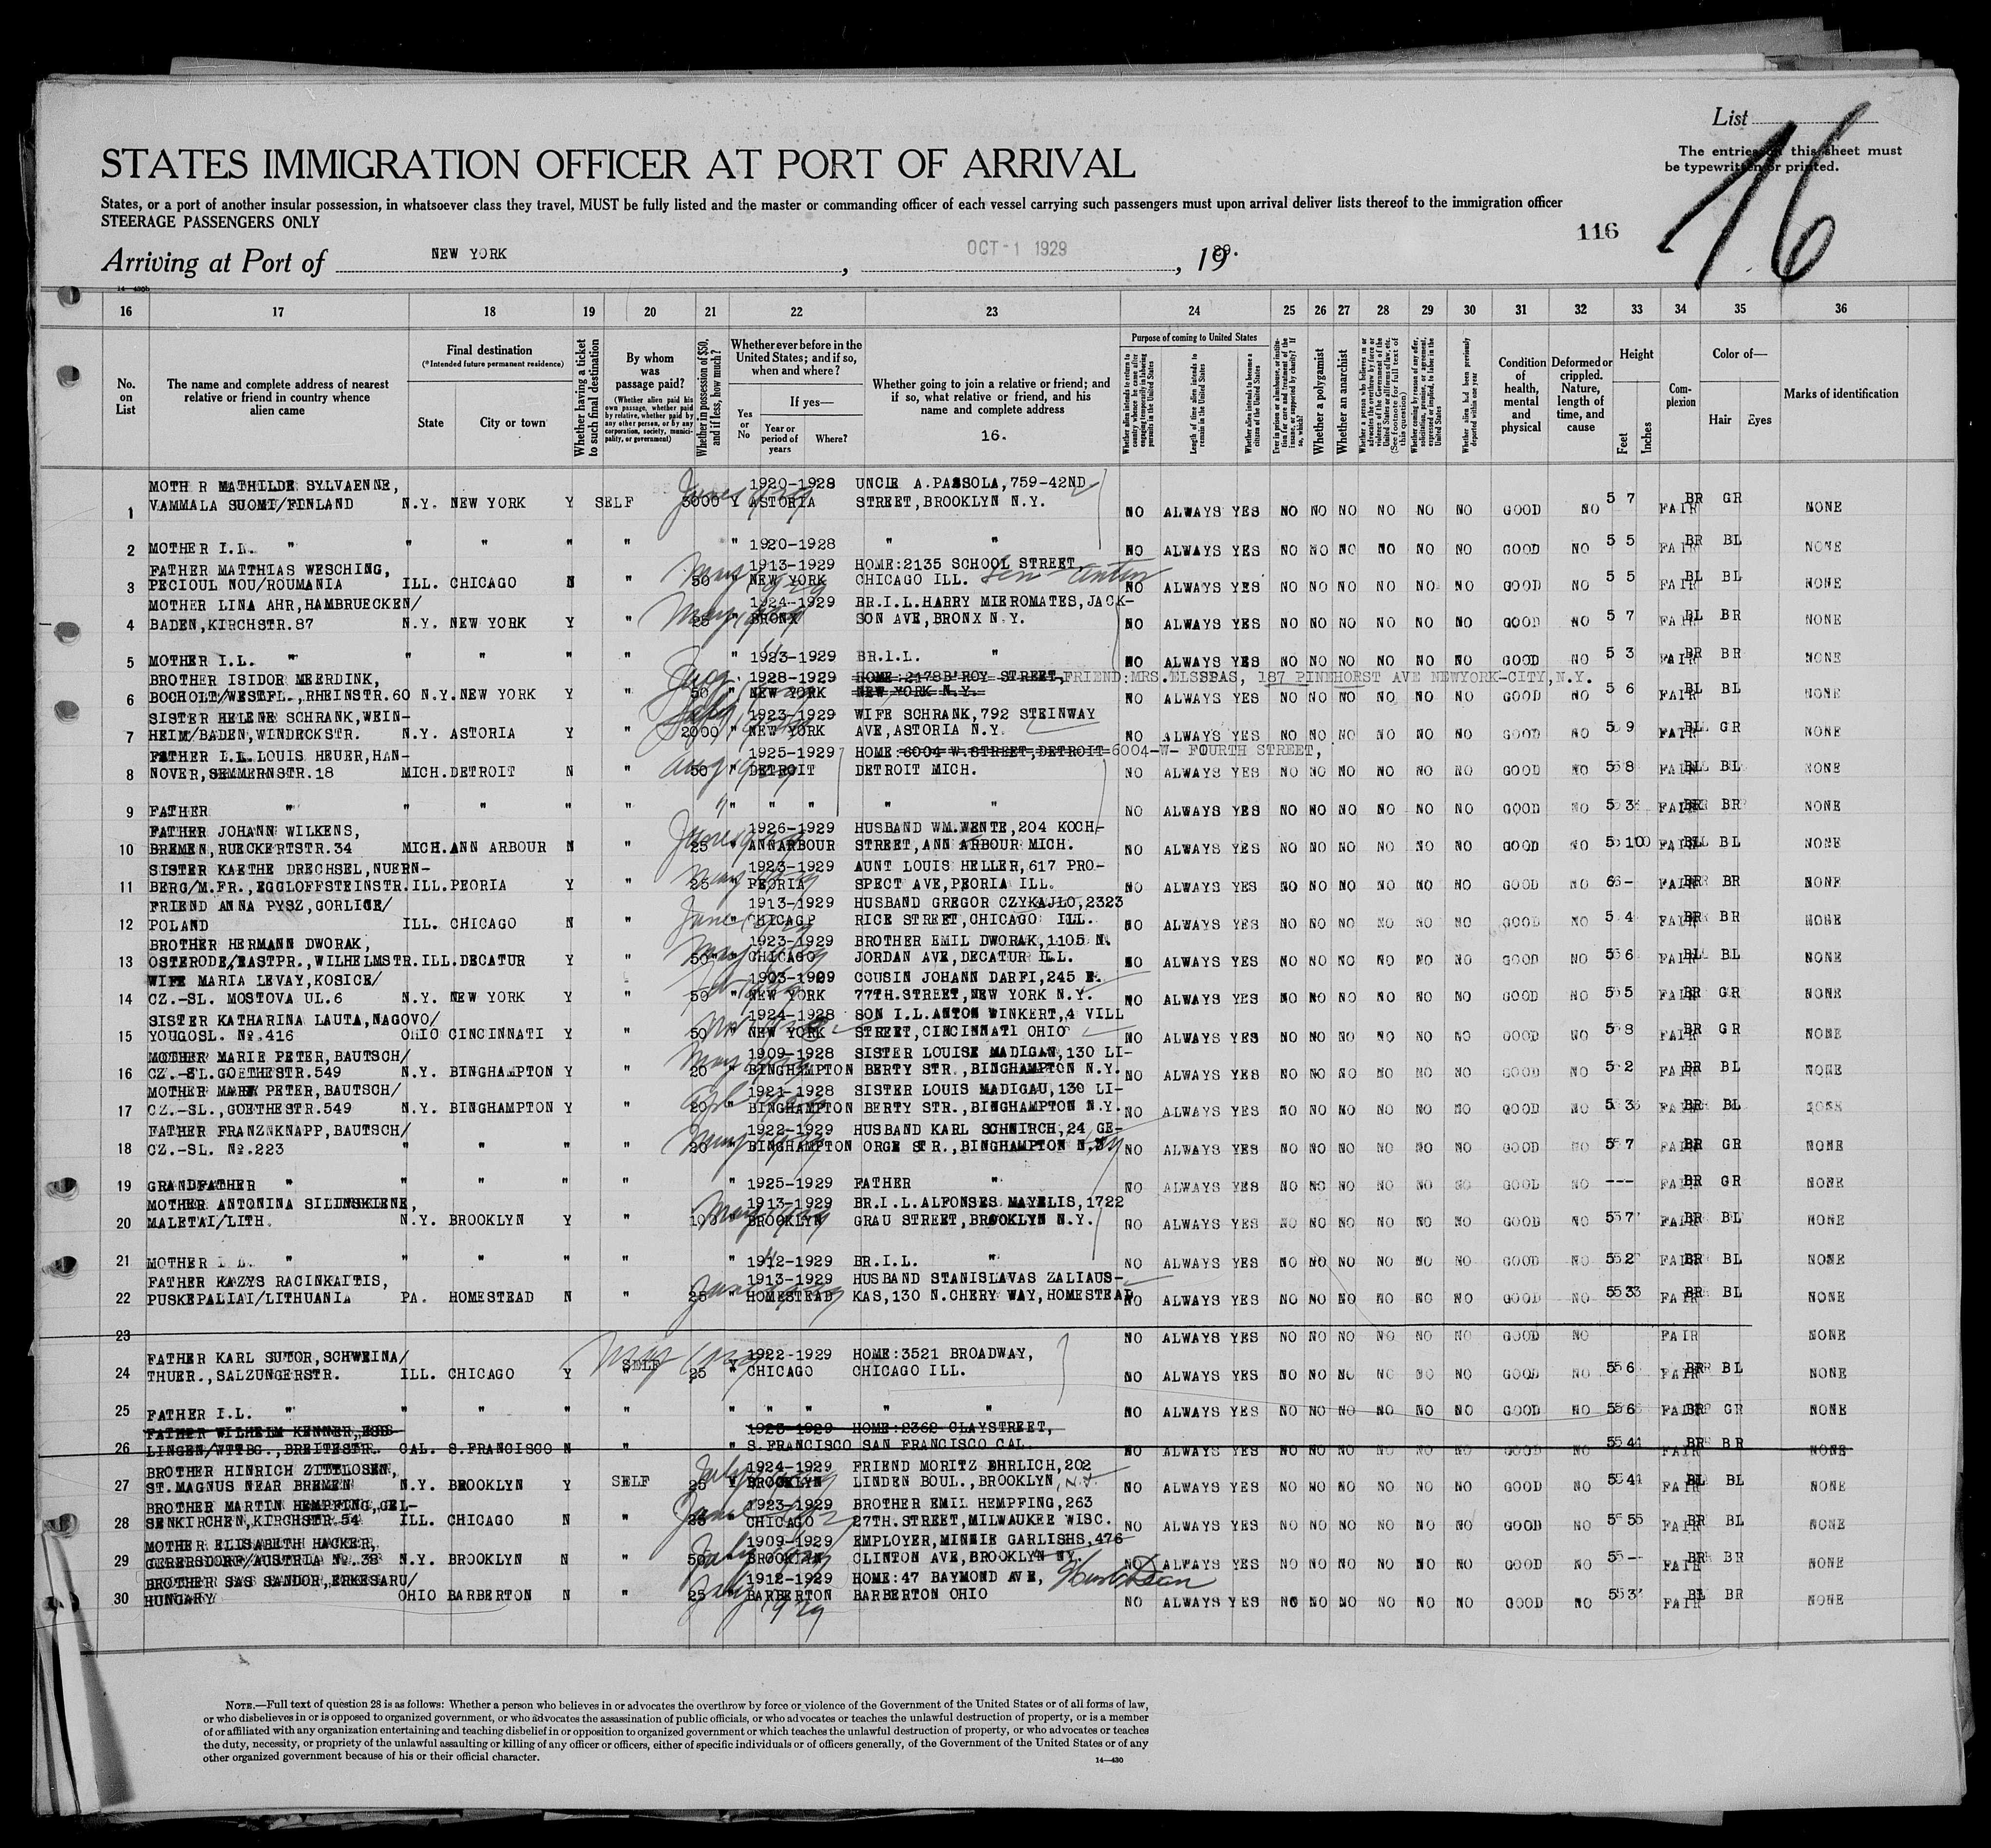 List
The entries on this sheet must
be typewritten or printed.
16
STATES IMMIGRATION OFFICER AT PORT OF ARRIVAL
States, or a port of another insular possession, in whatsoever class they travel, MUST be fully listed and the master or commanding officer of each vessel carrying such passengers must upon arrival deliver lists thereof to the immigration officer
STEERAGE PASSENGERS ONLY
116
Arriving at Port of NEW YORK, OCT-1 1929, 1929.
16 17 18 19 20 21 22 23 24 25 26 27 28 29 30 31 32 33 34 35 36
No. on List
The name and complete address of nearest relative or friend in country whence alien came
Final destination
(*Intended future permanent residence)
State
City or town
Whether having a ticket to such final destination
By whom was passage paid?
(Whether alien paid his own passage, whether paid by relative, whether paid by any other person, or by any corporation, society, municipality, or government)
Whether in possession of $50, and if less, how much?
Whether ever before in the United States; and if so, when and where?
Yes or No
If yes—
Year or period of years
Where?
Whether going to join a relative or friend; and if so, what relative or friend, and his name and complete address
16.
Purpose of coming to United States
Length of time alien intends to remain in the United States
Whether a polygamist
Whether an anarchist
Condition of health, mental and physical
Deformed or crippled. Nature, length of time, and cause
Height
Feet
Inches
Complexion
Color of—
Hair
Eyes
Marks of identification
MOTH R MATHILDE SYLVAENNE, 1920-1928 UNCLE A.PASSOLA,759-42ND
1 VAMMALA SUOMI/FINLAND N.Y. NEW YORK Y SELF 3000 Y ASTORIA STREET,BROOKLYN N.Y. NO ALWAYS YES NO NO NO NO NO NO GOOD NO 5 7 FAIR BR GR NONE
2 MOTHER I.L. " " " " " " 1920-1928 " " NO ALWAYS YES NO NO NO NO NO NO GOOD NO 5 5 FAIR BR BL NONE
FATHER MATTHIAS WESCHING, 1913-1929 HOME:2135 SCHOOL STREET,
3 PECIOUL NOU/ROUMANIA ILL. CHICAGO N " 50 " NEW YORK CHICAGO ILL. NO ALWAYS YES NO NO NO NO NO NO GOOD NO 5 5 FAIR BL BL NONE
MOTHER LINA AHR,HAMBRUECKEN/ 1924-1929 BR.I.L.HARRY MIEROMATES,JACK-
4 BADEN,KIRCHSTR.87 N.Y. NEW YORK Y " 25 " BRONX SON AVE,BRONX N.Y. NO ALWAYS YES NO NO NO NO NO NO GOOD NO 5 7 FAIR BL BR NONE
5 MOTHER I.L. " " " " " " 1923-1929 BR.I.L. " NO ALWAYS YES NO NO NO NO NO NO GOOD NO 5 3 FAIR BR BR NONE
BROTHER ISIDOR MEERDINK, 1928-1929 HOME:2178B'ROY STREET,FRIEND:MRS.ELSSPAS, 187 PINEHORST AVE NEWYORK-CITY,N.Y.
6 BOCHOLT/WESTFL.,RHEINSTR.60 N.Y. NEW YORK Y " 50 " NEW YORK NEW YORK N.Y. NO ALWAYS YES NO NO NO NO NO NO GOOD NO 5 6 FAIR BL BL NONE
SISTER HELENE SCHRANK,WEIN- 1923-1929 WIFE SCHRANK,792 STEINWAY
7 HEIM/BADEN,WINDECKSTR. N.Y. ASTORIA Y " 2000 " NEW YORK AVE,ASTORIA N.Y. NO ALWAYS YES NO NO NO NO NO NO GOOD NO 5 9 FAIR BL GR NONE
FATHER I.L.LOUIS HEUER,HAN- 1925-1929 HOME 6004 W.STREET,DETROIT 6004-W- FOURTH STREET,
8 NOVER,SEMMERNSTR.18 MICH.DETROIT N " 50 " DETROIT DETROIT MICH. NO ALWAYS YES NO NO NO NO NO NO GOOD NO 5 8 FAIR BL BL NONE
9 FATHER " " " " " " " " " " NO ALWAYS YES NO NO NO NO NO NO GOOD NO 5 3 FAIR BR BR NONE
FATHER JOHANN WILKENS, 1926-1929 HUSBAND WM.WENTE,204 KOCH-
10 BREMEN,RUECKERTSTR.34 MICH.ANN ARBOUR N " 25 " ANNARBOUR STREET,ANN ARBOUR MICH. NO ALWAYS YES NO NO NO NO NO NO GOOD NO 5 10 FAIR BL BL NONE
SISTER KAETHE DRECHSEL,NUERN- 1923-1929 AUNT LOUIS HELLER,617 PRO-
11 BERG/M.FR.,EGGLOFFSTEINSTR.ILL.PEORIA Y " 25 " PEORIA SPECT AVE,PEORIA ILL. NO ALWAYS YES NO NO NO NO NO NO GOOD NO 6 - FAIR BR BR NONE
FRIEND ANNA PYSZ,GORLICE/ 1913-1929 HUSBAND GREGOR CZYKAJLO,2323
12 POLAND ILL. CHICAGO N " " CHICAGO RICE STREET,CHICAGO ILL. NO ALWAYS YES NO NO NO NO NO NO GOOD NO 5 4 FAIR BR BR NONE
BROTHER HERMANN DWORAK, 1923-1929 BROTHER EMIL DWORAK,1105 N.
13 OSTERODE/EASTPR.,WILHELMSTR.ILL.DECATUR Y " 50 " CHICAGO JORDAN AVE,DECATUR ILL. NO ALWAYS YES NO NO NO NO NO NO GOOD NO 5 6 FAIR BL BL NONE
WIFE MARIA LEVAY,KOSICE/ 1903-1909 COUSIN JOHANN DARFI,245 E.
14 CZ.-SL. MOSTOVA UL.6 N.Y. NEW YORK Y " 50 " NEW YORK 77TH.STREET,NEW YORK N.Y. NO ALWAYS YES NO NO NO NO NO NO GOOD NO 5 5 FAIR BR GR NONE
SISTER KATHARINA LAUTA,NAGOVO/ 1924-1928 SON I.L.ANTON WINKERT,4 VILL
15 YOUGOSL. No.416 OHIO CINCINNATI Y " 50 " NEW YORK STREET,CINCINNATI OHIO NO ALWAYS YES NO NO NO NO NO NO GOOD NO 5 8 FAIR BR GR NONE
MOTHER MARIE PETER,BAUTSCH/ 1909-1928 SISTER LOUISE MADIGAN,130 LI-
16 CZ.-SL.GOETHESTR.549 N.Y. BINGHAMPTON Y " 20 " BINGHAMPTON BERTY STR.,BINGHAMPTON N.Y. NO ALWAYS YES NO NO NO NO NO NO GOOD NO 5 2 FAIR BR BL NONE
MOTHER MARY PETER,BAUTSCH/ 1921-1928 SISTER LOUIS MADIGAU,130 LI-
17 CZ.-SL.,GOETHESTR.549 N.Y. BINGHAMPTON Y " 20 " BINGHAMPTON BERTY STR.,BINGHAMPTON N.Y. NO ALWAYS YES NO NO NO NO NO NO GOOD NO 5 3 FAIR BR BL NONE
FATHER FRANZ KNAPP,BAUTSCH/ 1922-1929 HUSBAND KARL SCHNIRCH,24 GE-
18 CZ.-SL. No.223 " " " " 20 " BINGHAMPTON ORGE STR.,BINGHAMPTON N.Y. NO ALWAYS YES NO NO NO NO NO NO GOOD NO 5 7 FAIR BR GR NONE
19 GRANDFATHER " " " " " " 1925-1929 FATHER " NO ALWAYS YES NO NO NO NO NO NO GOOD NO --- FAIR BR GR NONE
MOTHER ANTONINA SILINSKIENE, 1913-1929 BR.I.L.ALFONSES MAYELIS,1722
20 MALETAI/LITH. N.Y. BROOKLYN Y " " BROOKLYN GRAU STREET,BROOKLYN N.Y. NO ALWAYS YES NO NO NO NO NO NO GOOD NO 5 7 FAIR BR BL NONE
21 MOTHER I.L. " " " " " " 1912-1929 BR.I.L. " NO ALWAYS YES NO NO NO NO NO NO GOOD NO 5 2 FAIR BR BL NONE
FATHER KAZYS RACINKAITIS, 1913-1929 HUSBAND STANISLAVAS ZALIAUS-
22 PUSKEPALIAI/LITHUANIA PA. HOMESTEAD N " 25 " HOMESTEAD KAS,130 N.CHERY WAY,HOMESTEAD NO ALWAYS YES NO NO NO NO NO NO GOOD NO 5 3 FAIR BR BL NONE
23 NO ALWAYS YES NO NO NO NO NO NO GOOD NO FAIR NONE
FATHER KARL SUTOR,SCHWEINA/ 1922-1929 HOME:3521 BROADWAY,
24 THUER.,SALZUNGERSTR. ILL. CHICAGO Y SELF 25 Y CHICAGO CHICAGO ILL. NO ALWAYS YES NO NO NO NO NO NO GOOD NO 5 6 FAIR BR BL NONE
25 FATHER I.L. " " " " " " " " " " " NO ALWAYS YES NO NO NO NO NO NO GOOD NO 5 6 FAIR BR GR NONE
FATHER WILHELM KENNER,ESS- 1923-1929 HOME:2362 CLAYSTREET,
26 LINGEN/WTTBG.,BREITESTR. CAL. S.FRANCISCO N " " S.FRANCISCO SAN FRANCISCO CAL. NO ALWAYS YES NO NO NO NO NO NO GOOD NO 5 4 FAIR BR BR NONE
BROTHER HINRICH ZITTLOSEN, 1924-1929 FRIEND MORITZ EHRLICH,202
27 ST.MAGNUS NEAR BREMEN N.Y. BROOKLYN Y SELF 25 Y BROOKLYN LINDEN BOUL.,BROOKLYN, N.Y. NO ALWAYS YES NO NO NO NO NO NO GOOD NO 5 4 FAIR BL BL NONE
BROTHER MARTIN HEMPFING,GEL- 1923-1929 BROTHER EMIL HEMPFING,263
28 SENKIRCHEN,KIRCHSTR.54 ILL. CHICAGO N " 25 " CHICAGO 27TH.STREET,MILWAUKEE WISC. NO ALWAYS YES NO NO NO NO NO NO GOOD NO 5 5 FAIR BR BL NONE
MOTHER ELISABETH HACKER, 1909-1929 EMPLOYER,MINNIE GARLISHS,476
29 GERERSDORF/AUSTRIA No.38 N.Y. BROOKLYN N " 50 " BROOKLYN CLINTON AVE,BROOKLYN NY. NO ALWAYS YES NO NO NO NO NO NO GOOD NO 5 - FAIR BR BR NONE
BROTHER SAS SANDOR,ERKESARU/ 1912-1929 HOME:47 BAYMOND AVE,
30 HUNGARY OHIO BARBERTON N " 25 " BARBERTON BARBERTON OHIO NO ALWAYS YES NO NO NO NO NO NO GOOD NO 5 3 FAIR BL BR NONE
NOTE.—Full text of question 28 is as follows: Whether a person who believes in or advocates the overthrow by force or violence of the Government of the United States or of all forms of law,
or who disbelieves in or is opposed to organized government, or who advocates the assassination of public officials, or who advocates or teaches the unlawful destruction of property, or is a member
of or affiliated with any organization entertaining and teaching disbelief in or opposition to organized government or which teaches the unlawful destruction of property, or who advocates or teaches
the duty, necessity, or propriety of the unlawful assaulting or killing of any officer or officers, either of specific individuals or of officers generally, of the Government of the United States or of any
other organized government because of his or their official character.
14—430